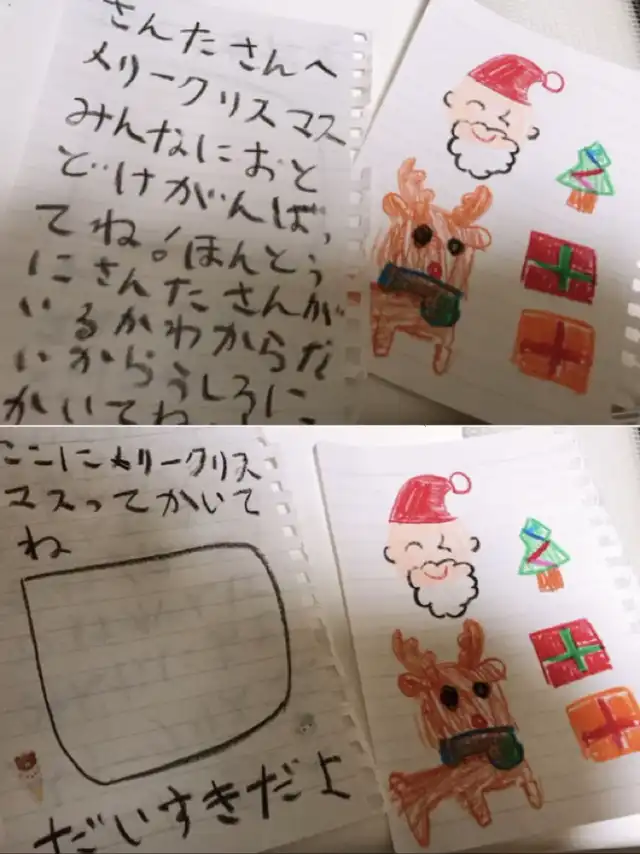 さんたさんへ
メリークリスマス
みんなにおと
どけがんばっ
てね!ほんとう
にさんたさんが
いるかわからな
いからうしろに
かいてね
ここにメリークリス
マスってかいて
ね
だいすきだよ